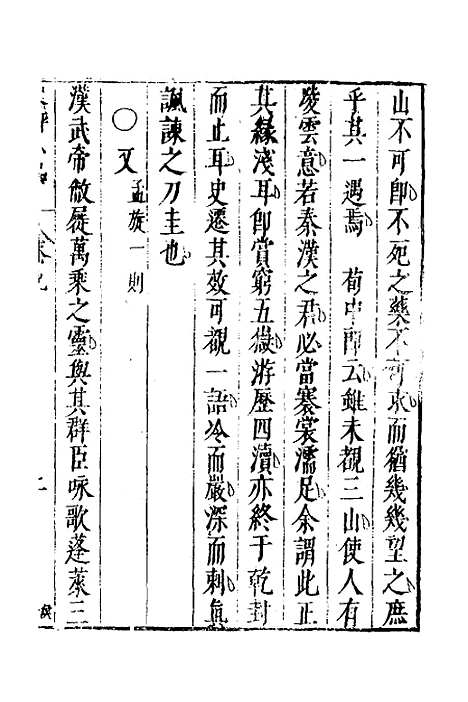 山不可即不死之藥不可求而猶幾幾望之庶
乎其一遇焉　荀中郎云雖未覩三山使人有
陵雲意若秦漢之君必當褰裳濡足余謂此正
其緣淺耳即賞窮五嶽游歷四瀆亦終于乾封
而止耳史遷其效可覩一語冷而嚴深而刺真
諷諫之刀圭也
○又 孟旋一則
漢武帝敝屣萬乘之靈與其群臣咏歌蓬萊三